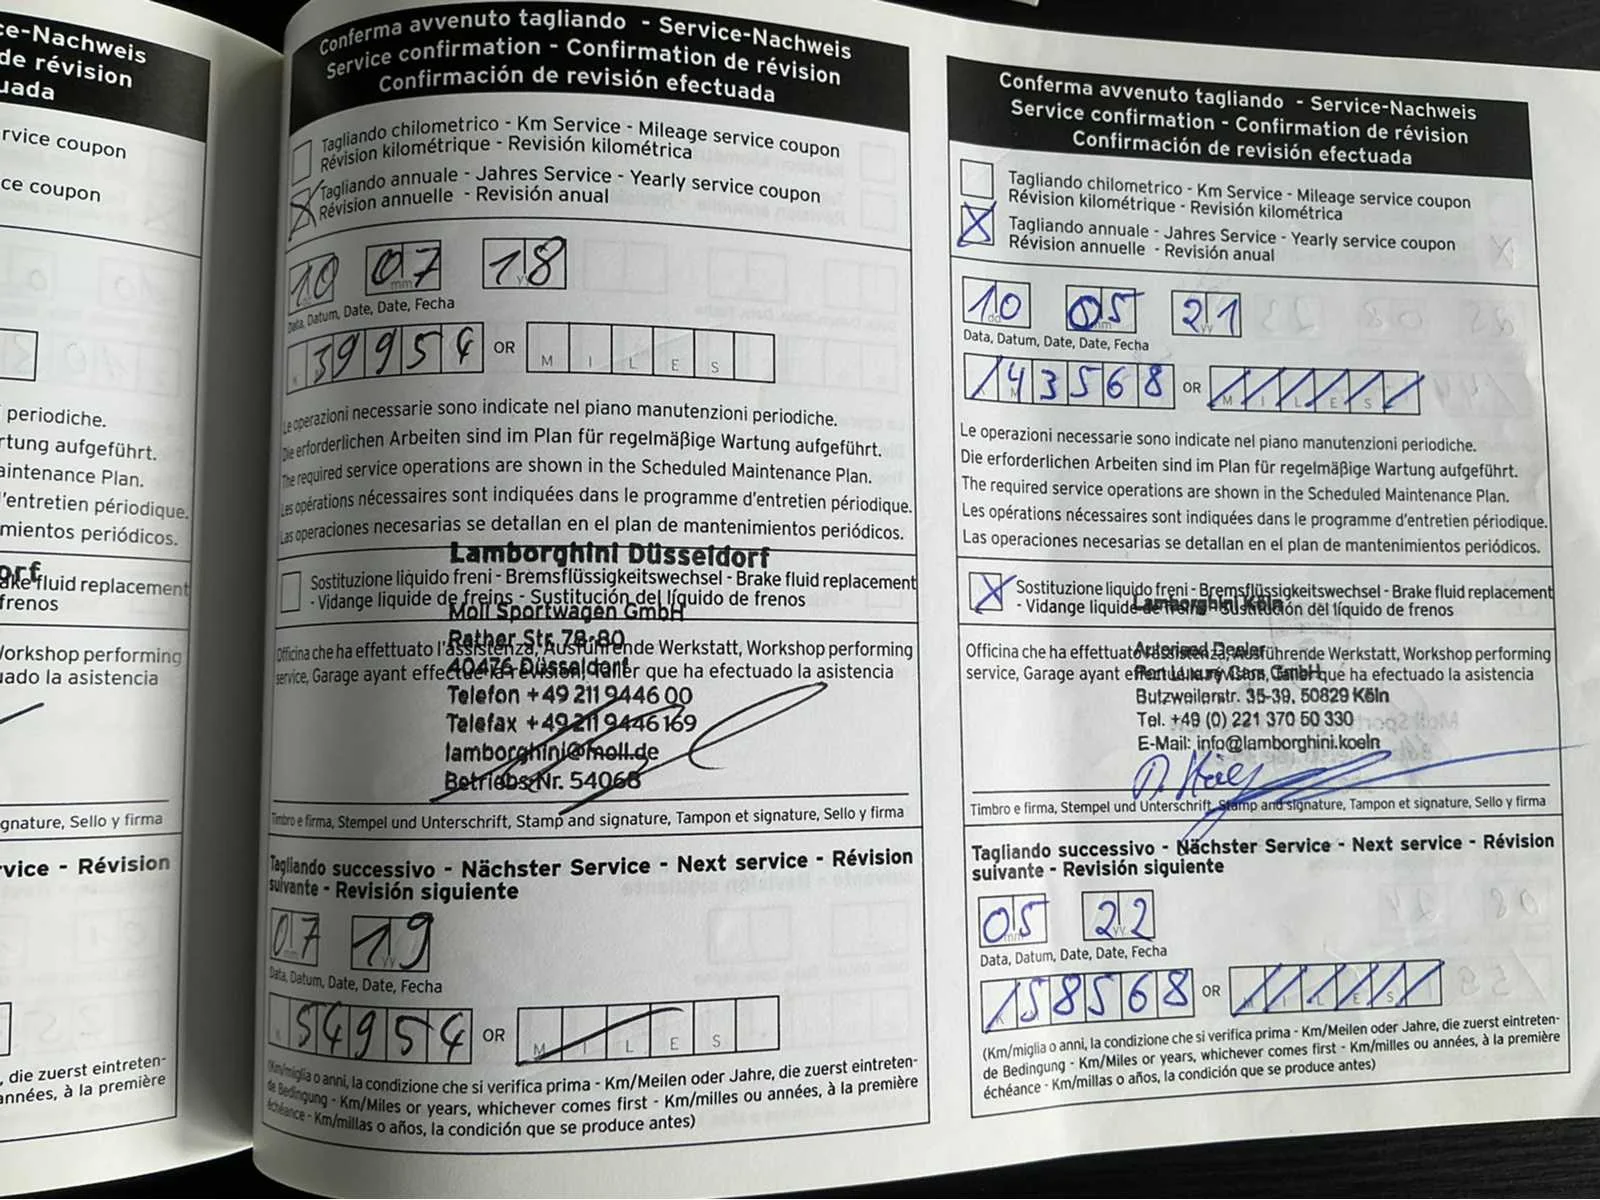 ce-Nachweis
de révision
uada
rvice coupon
ce coupon
periodiche.
rtung aufgeführt.
aintenance Plan.
'entretien périodique.
mientos periódicos.
orf
ake fluid replacement
frenos
Workshop performing
uado la asistencia
gnature, Sello y firma
vice - Révision
, die zuerst eintreten-
années, à la première
Conferma avvenuto tagliando - Service-Nachweis
Service confirmation - Confirmation de révision
Confirmación de revisión efectuada
Tagliando chilometrico - Km Service - Mileage service coupon
Révision kilométrique - Revisión kilométrica
Tagliando annuale - Jahres Service - Yearly service coupon
Révision annuelle - Revisión anual
10 07 18
Data, Datum, Date, Date, Fecha
39954 OR MILES
Le operazioni necessarie sono indicate nel piano manutenzioni periodiche.
Die erforderlichen Arbeiten sind im Plan für regelmäßige Wartung aufgeführt.
The required service operations are shown in the Scheduled Maintenance Plan.
Les opérations nécessaires sont indiquées dans le programme d'entretien périodique.
Las operaciones necesarias se detallan en el plan de mantenimientos periódicos.
Lamborghini Düsseldorf
Sostituzione liquido freni - Bremsflüssigkeitswechsel - Brake fluid replacement
- Vidange liquide de freins - Sustitución del líquido de frenos
Moll Sportwagen GmbH
Rather Str. 78-80
Officina che ha effettuato l'assistenza, Ausführende Werkstatt, Workshop performing
service, Garage ayant effectué la révision, Taller que ha efectuado la asistencia
40476 Düsseldorf
Telefon +49 211 9446 00
Telefax +49 211 9446 169
lamborghini@moll.de
Betriebs-Nr. 54068
Timbro e firma, Stempel und Unterschrift, Stamp and signature, Tampon et signature, Sello y firma
Tagliando successivo - Nächster Service - Next service - Révision
suivante - Revisión siguiente
07 19
Data, Datum, Date, Date, Fecha
54954 OR MILES
(Km/miglia o anni, la condizione che si verifica prima - Km/Meilen oder Jahre, die zuerst eintreten-
de Bedingung - Km/Miles or years, whichever comes first - Km/milles ou années, à la première
échéance - Km/millas o años, la condición que se produce antes)
Conferma avvenuto tagliando - Service-Nachweis
Service confirmation - Confirmation de révision
Confirmación de revisión efectuada
Tagliando chilometrico - Km Service - Mileage service coupon
Révision kilométrique - Revisión kilométrica
Tagliando annuale - Jahres Service - Yearly service coupon
Révision annuelle - Revisión anual
10 05 21
Data, Datum, Date, Date, Fecha
143568 OR MILES
Le operazioni necessarie sono indicate nel piano manutenzioni periodiche.
Die erforderlichen Arbeiten sind im Plan für regelmäßige Wartung aufgeführt.
The required service operations are shown in the Scheduled Maintenance Plan.
Les opérations nécessaires sont indiquées dans le programme d'entretien périodique.
Las operaciones necesarias se detallan en el plan de mantenimientos periódicos.
Sostituzione liquido freni - Bremsflüssigkeitswechsel - Brake fluid replacement
- Vidange liquide de freins - Sustitución del líquido de frenos
Lamborghini Köln
Officina che ha effettuato l'assistenza, Ausführende Werkstatt, Workshop performing
service, Garage ayant effectué la révision, Taller que ha efectuado la asistencia
Dealer
Luxury Cars GmbH
Butzweilerstr. 35-39, 50829 Köln
Tel. +49 (0) 221 370 50 330
E-Mail: info@lamborghini.koeln
Timbro e firma, Stempel und Unterschrift, Stamp and signature, Tampon et signature, Sello y firma
Tagliando successivo - Nächster Service - Next service - Révision
suivante - Revisión siguiente
05 22
Data, Datum, Date, Date, Fecha
158568 OR MILES
(Km/miglia o anni, la condizione che si verifica prima - Km/Meilen oder Jahre, die zuerst eintreten-
de Bedingung - Km/Miles or years, whichever comes first - Km/milles ou années, à la première
échéance - Km/millas o años, la condición que se produce antes)